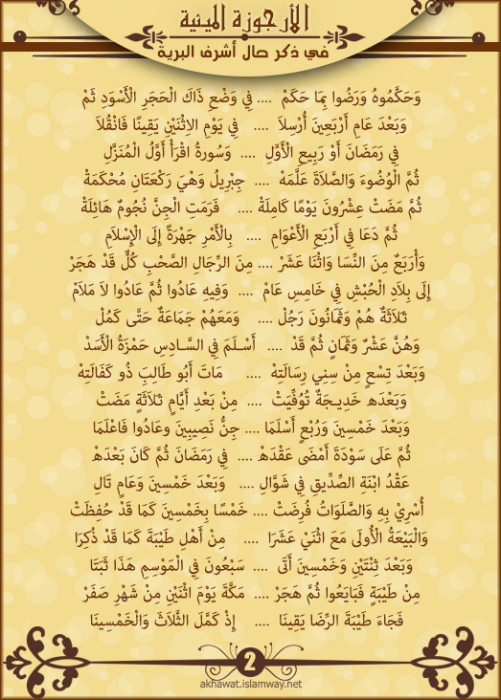 الأرجوزة الميئية
في ذكر حال أشرف البرية
وَحَكَّمُوهُ وَرَضُوا بِمَا حَكَمْ .... فِي وَضْعِ ذَاكَ الْحَجَرِ الْأَسْوَدِ ثَمْ
وَبَعْدَ عَامِ أَرْبَعِينَ أُرْسِلاَ .... فِي يَوْمِ الاِثْنَيْنِ يَقِينًا فَانْقُلاَ
فِي رَمَضَانَ أَوْ رَبِيعِ الْأَوَّلِ .... وَسُورَةُ اقْرَأْ أَوَّلُ الْمُنَزَّلِ
ثُمَّ الْوُضُوءَ وَالصَّلاَةَ عَلَّمَهْ .... جِبْرِيلُ وَهْيَ رَكْعَتَانِ مُحْكَمَةْ
ثُمَّ مَضَتْ عِشْرُونَ يَوْمًا كَامِلَةْ .... فَرَمَتِ الْجِنَّ نُجُومٌ هَائِلَةْ
ثُمَّ دَعَا فِي أَرْبَعِ الْأَعْوَامِ .... بِالْأَمْرِ جَهْرَةً إِلَى الْإِسْلاَمِ
وَأَرْبَعٌ مِنَ النِّسَا وَاثْنَا عَشَرْ .... مِنَ الرِّجَالِ الصَّحْبِ كُلٌّ قَدْ هَجَرْ
إِلَى بِلاَدِ الْحُبْشِ فِي خَامِسِ عَامْ .... وَفِيهِ عَادُوا ثُمَّ عَادُوا لاَ مَلاَمْ
ثَلاَثَةٌ هُمْ وَثَمَانُونَ رَجُلْ .... وَمَعَهُمْ جَمَاعَةٌ حَتَّى كَمُلْ
وَهُنَّ عَشْرٌ وَثَمَانٍ ثُمَّ قَدْ .... أَسْلَمَ فِي السَّادِسِ حَمْزَةُ الْأَسَدْ
وَبَعْدَ تِسْعٍ مِنْ سِنِي رِسَالَتِهْ .... مَاتَ أَبُو طَالِبَ ذُو كَفَالَتِهْ
وَبَعْدَهُ خَدِيجَةٌ تُوُفِّيَتْ .... مِنْ بَعْدِ أَيَّامٍ ثَلاَثَةٍ مَضَتْ
وَبَعْدَ خَمْسِينَ وَرُبْعٍ أَسْلَمَا .... جِنُّ نَصِيبِينَ وعَادُوا فَاعْلَمَا
ثُمَّ عَلَى سَوْدَةَ أَمْضَى عَقْدَهْ .... فِي رَمَضَانَ ثُمَّ كَانَ بَعْدَهْ
عَقْدُ ابْنَةِ الصِّدِّيقِ فِي شَوَّالِ .... وَبَعْدَ خَمْسِينَ وَعَامٍ تَالِ
أُسْرِيْ بِهِ وَالصَّلَوَاتُ فُرِضَتْ .... خَمْسًا بِخَمْسِينَ كَمَا قَدْ حُفِظَتْ
وَالْبَيْعَةُ الْأُولَى مَعَ اثْنَيْ عَشَرَا .... مِنْ أَهْلِ طَيْبَةَ كَمَا قَدْ ذُكِرَا
وَبَعْدَ ثِنْتَيْنِ وَخَمْسِينَ أَتَى .... سَبْعُونَ فِي الْمَوْسِمِ هَذَا ثَبَتَا
مِنْ طَيْبَةٍ فَبَايَعُوا ثُمَّ هَجَرْ .... مَكَّةَ يَوْمَ اثْنَيْنِ مِنْ شَهْرِ صَفَرْ
فَجَاءَ طَيْبَةَ الرِّضَا يَقِينَا .... إِذْ كَمَّلَ الثَّلاَثَ وَالْخَمْسِينَا
2
akhawat.islamway.net